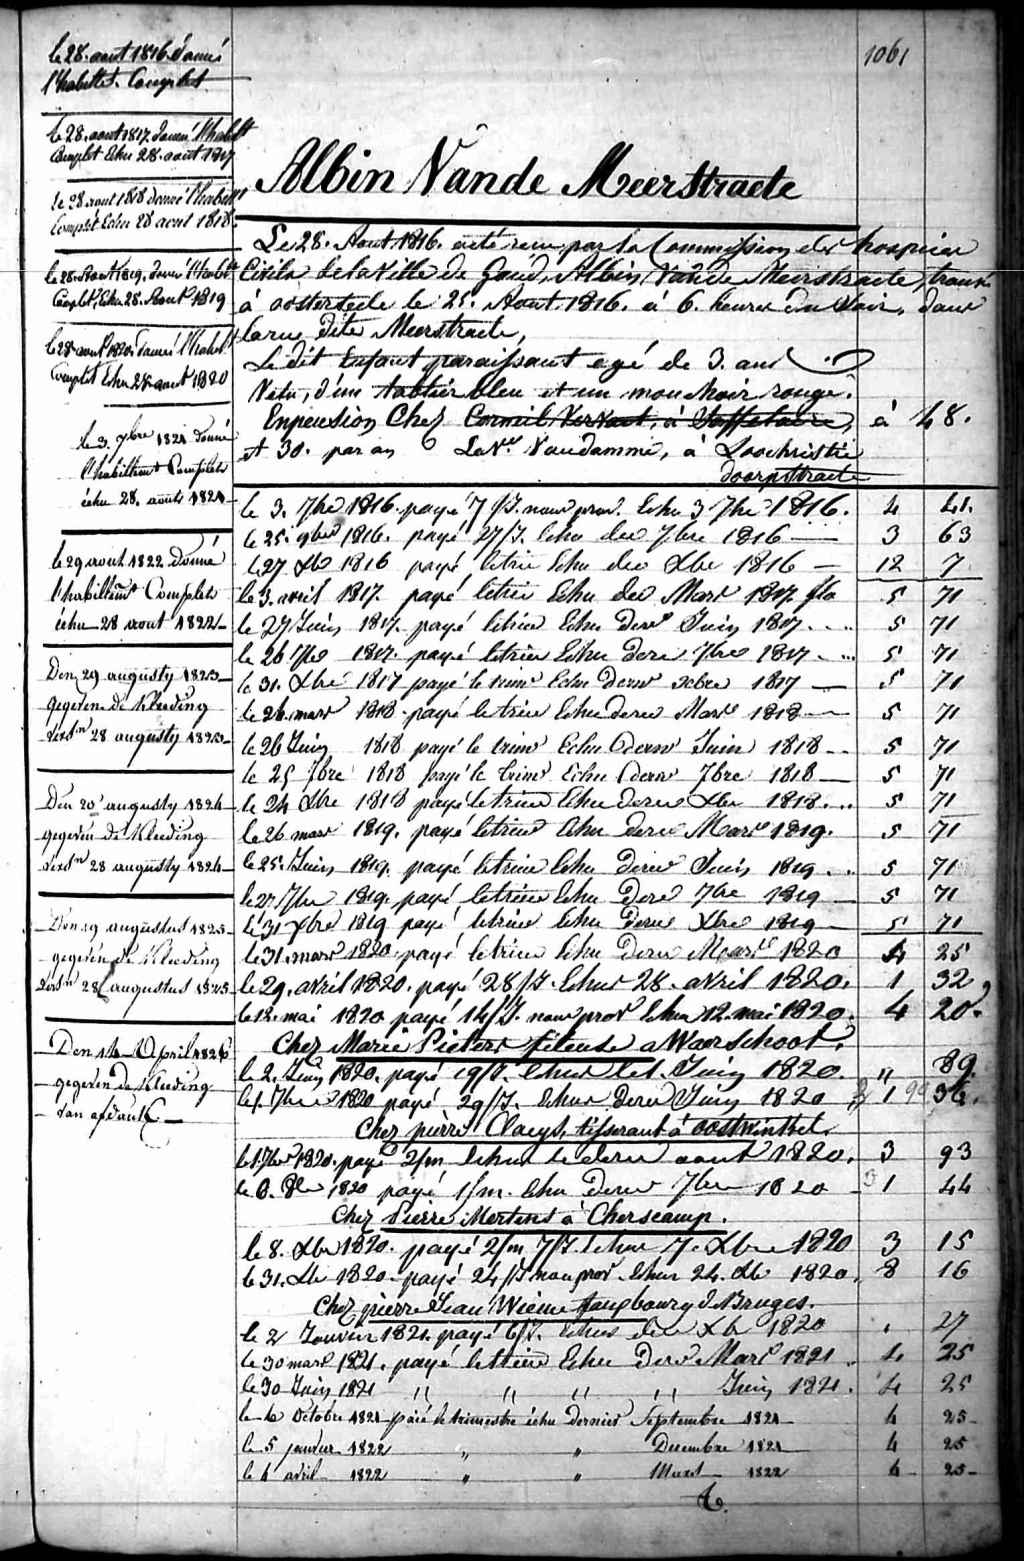 1061
le 28. aout 1816 donné
l'habillet. Complet
le 28. aout 1817. donné l'habillt
Complet Echu 28. aout 1817
le 28 aout 1818 donné l'habillt
Complet Echu 28 aout 1818.
le 28. Aout 1819. donné l'habillt
Complet, Echu 28. Aout 1819
le 28 aout 1820. donné l'habillt
Complet Echu 28 aout 1820
le 3. 7bre 1821 donné
l'habillemt Complet
échu 28. aout 1821
le 29 aout 1822 donné
l'habillemt Complet
échu 28 aout 1822
Den 29 augusty 1823
gegeven de Kleeding
28 augusty 1823
Den 20 augusty 1824
gegeven de Kleeding
28 augusty 1824
Den 19 augustus 1825
gegeven de Kleeding
28 augustus 1825
Den 14 April 1826
gegeven de Kleeding
van
Albin Vande Meerstraete
Le 28. Aout 1816. a été reçu par la Commission des hospices
Civils de la Ville de Gand, Albin Vande Meerstraete, trouvé
à oosterzeele le 25. Aout 1816. à 6. heures du Soir, dans
la rue dite Meerstraete,
Le dit Enfant paraissant agé de 3. ans
Vetu, d'un tablier bleu et un mouchoir rouge.
En pension Chez Cornil Vervaet, à Saffelaere, à 48.
et 30. par an La Ve. Vandamme, à Loochristie
doorpstraete
le 3. 7bre 1816. payé 7/J. nour prov. Echu 3 7bre 1816. 4 41.
le 25. 9bre 1816. payé 27/J. Echu der 7bre 1816 3 63
le 27 Xbre 1816 payé letrim Echu der Xbre 1816 12 7
le 3. avril 1817. payé letrim Echu der Mars 1817. fls 5 71
le 27 Juin 1817. payé letrim Echu dernr Juin 1817. 5 71
le 26 7bre 1817. payé letrim Echu dern 7bre 1817 5 71
le 31. Xbre 1817 payé le trimr Echu dernr xbre 1817 5 71
le 26. mars 1818 payé letrim Echu dern Mars 1818 5 71
le 26 Juin 1818 payé le trimr Echu dernr Juin 1818 5 71
le 25 7bre 1818 payé le trimr Echu dernr 7bre 1818 5 71
le 24 Xbre 1818 payé letrim Echu dern Xbre 1818. 5 71
le 26 mars 1819. payé letrim Echu dern Mars 1819. 5 71
le 25. Juin 1819. payé letrim Echu dern Juin 1819 5 71
le 27 7bre 1819. payé letrim Echu Dern 7bre 1819 5 71
le 31 Xbre 1819 payé letrim Echu Dern Xbre 1819 5 71
le 31. mars 1820. payé letrim Echu Dern Mars 1820 4 25
le 29. avril 1820. payé 28/J. Echus 28. avril 1820. 1 32
le 12. mai 1820 payé 14/J. nour prov Echu 12. mai 1820. 4 20.
Chez Marie Pieters fileuse a Waerschoot.
le 2. Juin 1820. payé 19/J. Echus le 1. Juin 1820. " 89
le 1. 7bre 1820 payé 29/J. Echus Dern Juin 1820 1 36.
Chez pierre Claeys, tisserant à oostwinkel.
le 1. 7bre 1820. payé 2/m Echus le dern aout 1820. 3 93
le 6. 8bre 1820 payé 1/m. Echu Dern 7bre 1820 1 44
Chez Pierre Mertens à Cherscamp.
le 8. Xbre 1820. payé 2/m 7/J. Echus 7. Xbre 1820 3 15
le 31. Xbre 1820. payé 24/J. nour prov. Echus 24. Xbre 1820. 8 16
Chez pierre Jean Wième fauxbourg d. Bruges.
le 2 Janvier 1821. payé 6/J. Echus der Xbre 1820 . 27
le 30 mars 1821. payé letrim Echu Dern Mars 1821 4 25
le 30 Juin 1821 " " " " Juin 1821. 4 25
le 6 Octobre 1821 paié le trimestre échu dernier Septembre 1821 4 25
le 5 janvier 1822 " " Decembre 1821 4 25
le 4 avril 1822 " " Mars 1822 4 25